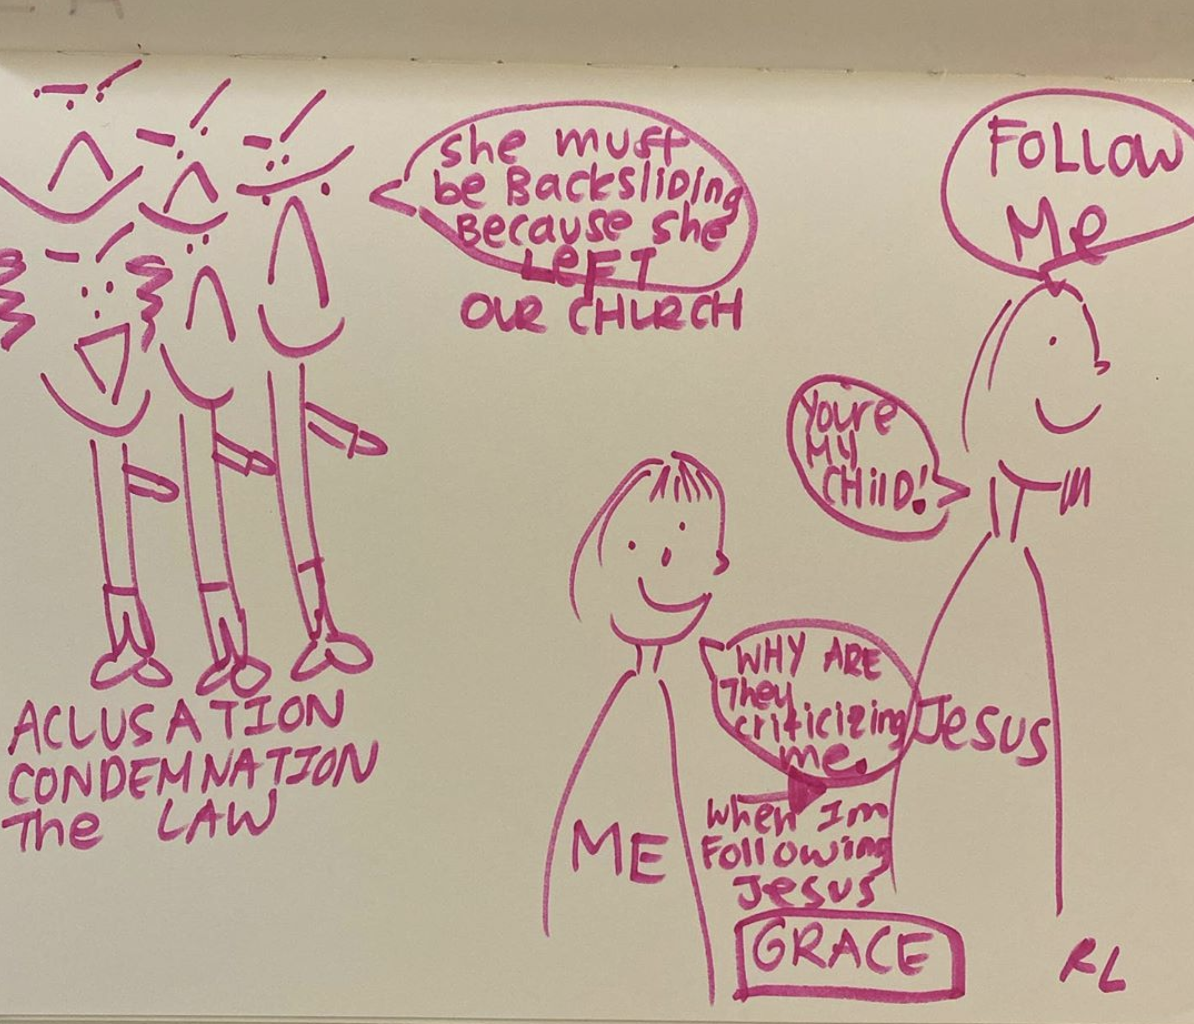 She must
be Backsliding
Because she
LEFT
OUR CHURCH
FOLLOW
Me
Youre
MY
CHilD!
WHY ARE
They
criticizing
me.
when Im
Following
Jesus
GRACE
ME
Jesus
ACLUSATION
CONDEMNATION
The LAW
RL